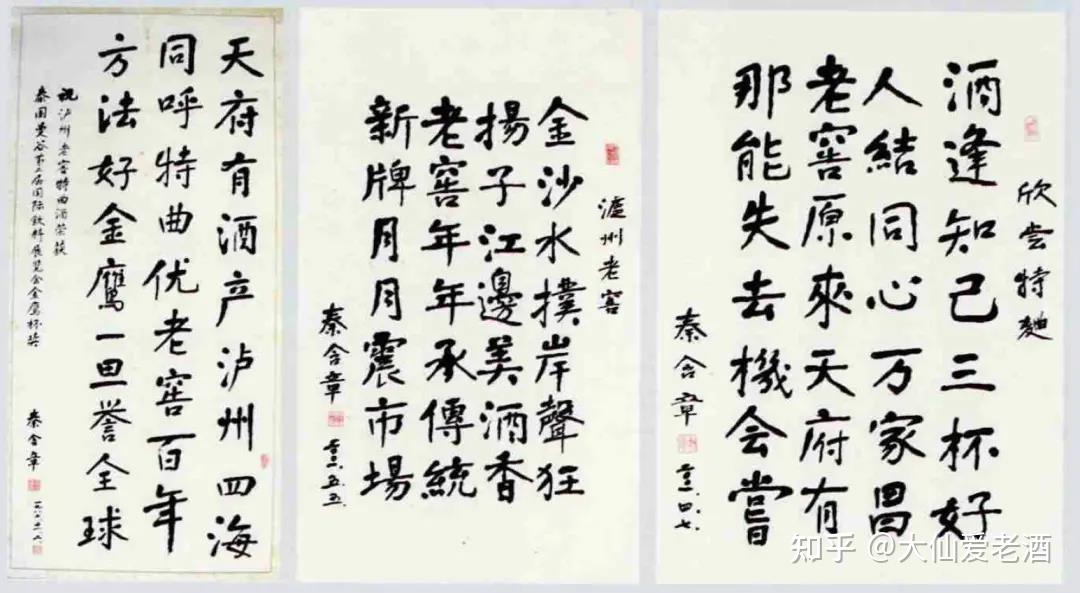 天府有酒产泸州四海
同呼特曲优老窖百年
方法好金鹰一旦誉全球
祝泸州老窖特曲酒荣获
泰国曼谷第三届国际饮料展览会金鹰杯奖
秦含章
瀘州老窖
金沙水撲岸聲狂
揚子江邊美酒香
老窖年年承傳統
新牌月月震市場
秦含章
五.五.
欣尝特麯
酒逢知己三杯好
人結同心万家昌
老窖原來天府有
那能失去機会嘗
秦含章
四.七.
知乎 @大仙爱老酒